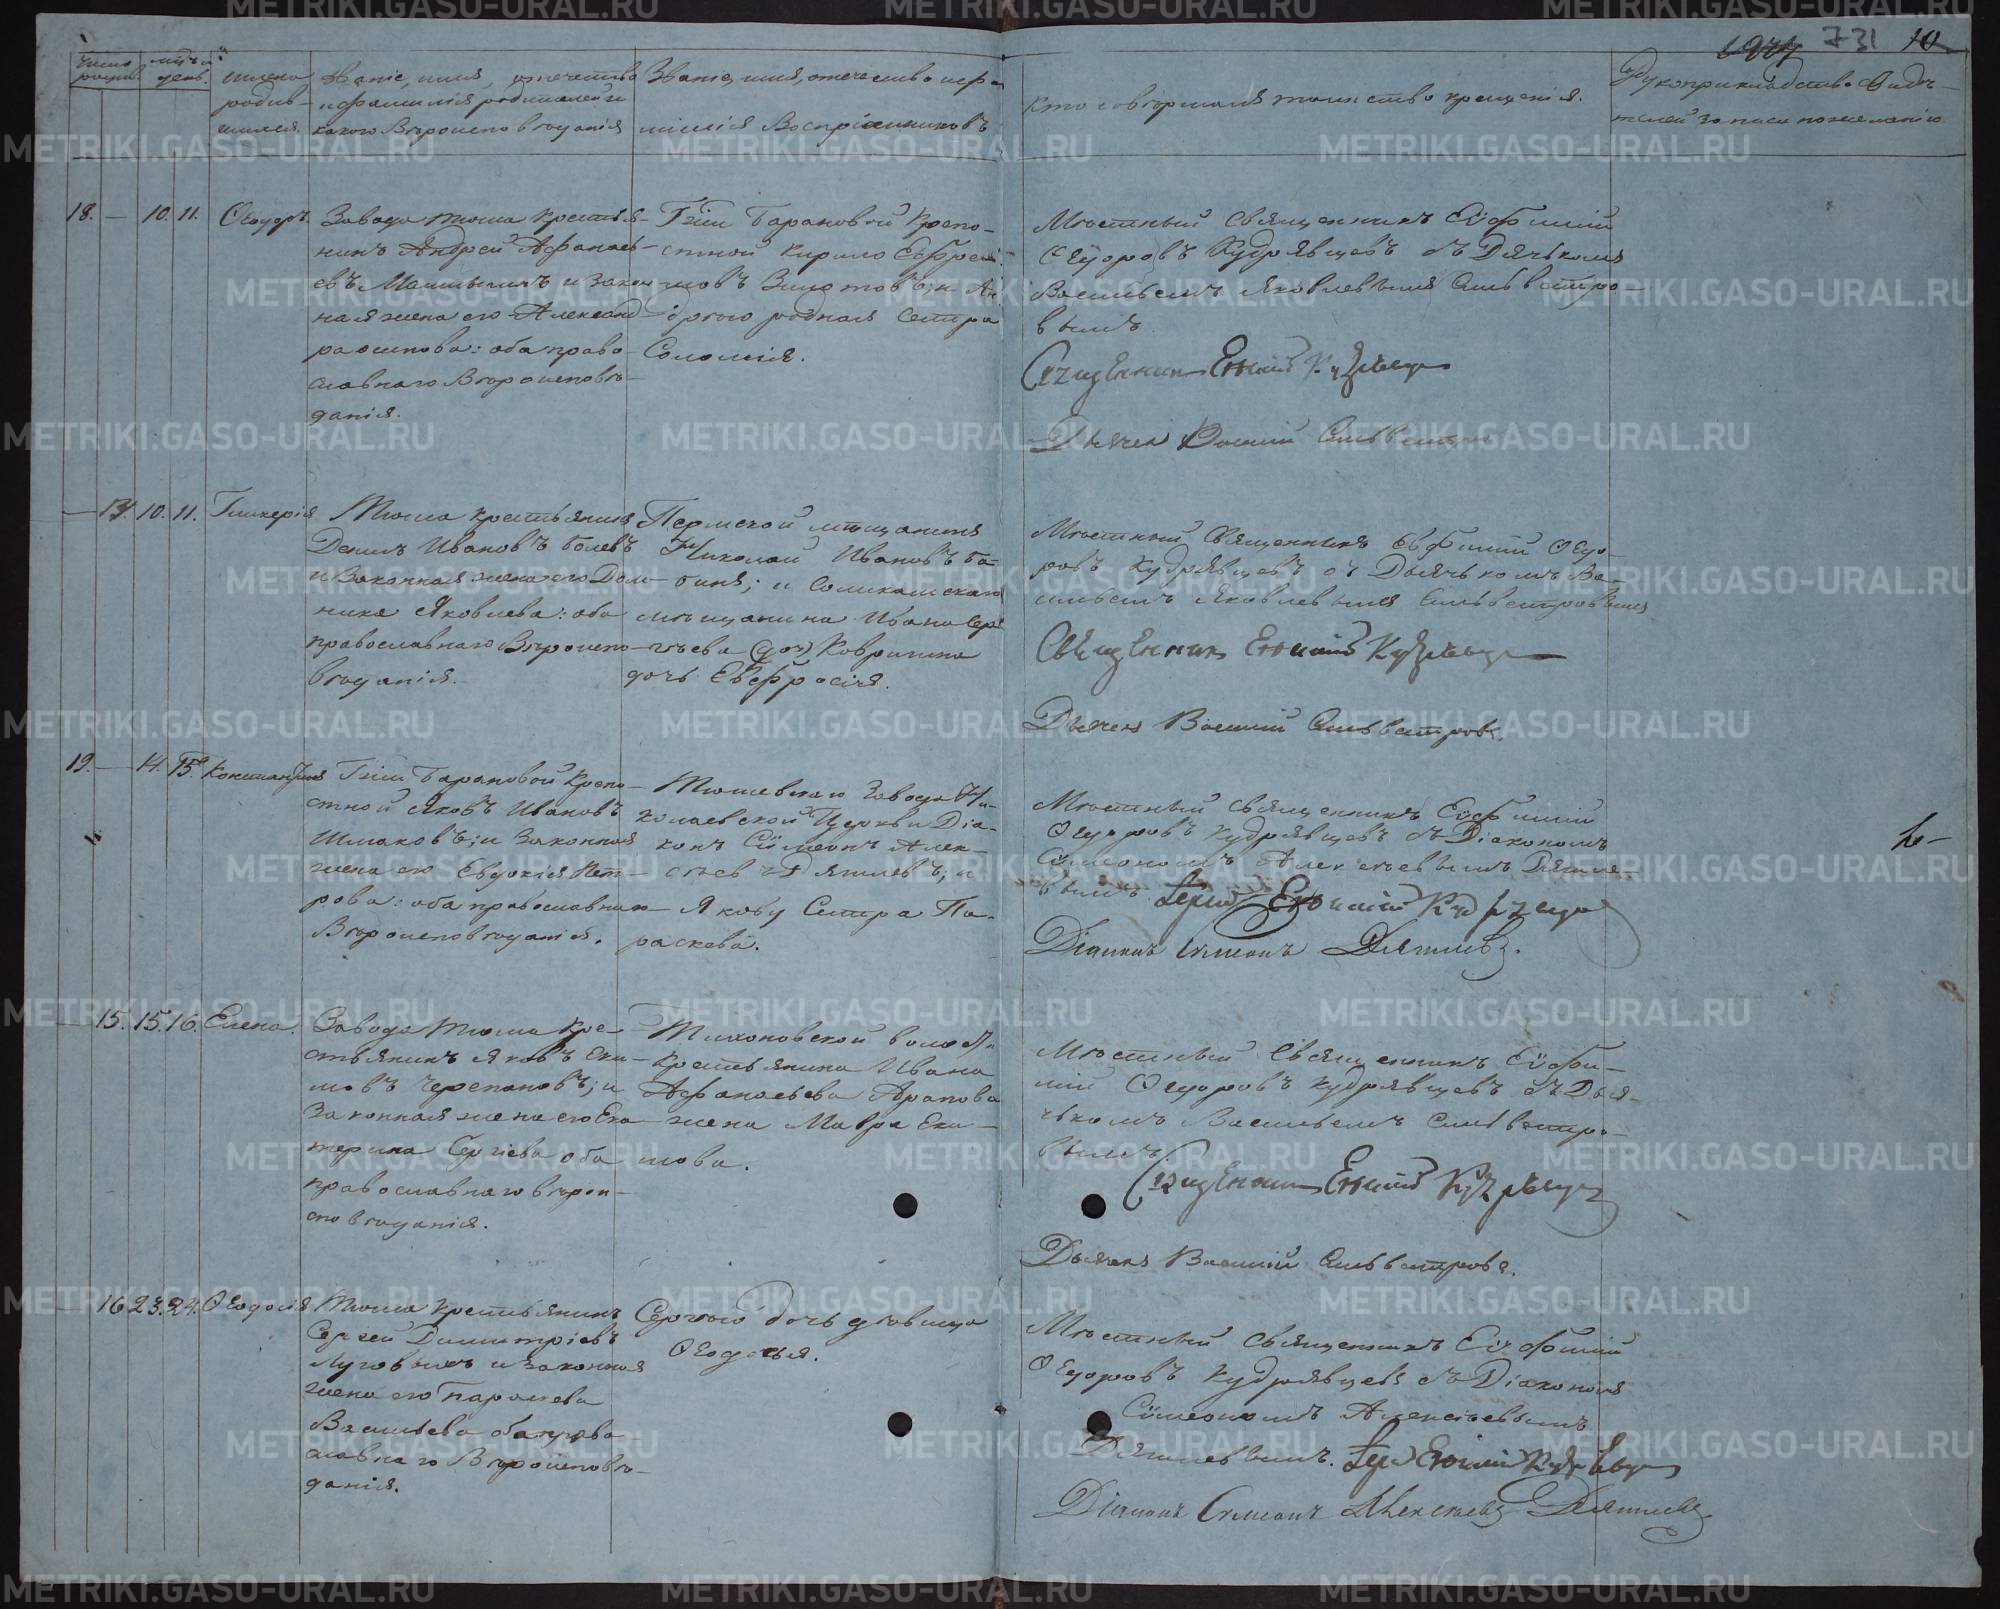 731 10
число родив.
мѣсяцъ и день.
имена родив-
шихся.
Званіе, имя, отчество
и фамилія родителей и
какого вѣроисповѣданія
Званіе, имя, отчество и фа-
милія воспріемниковъ
Кто совершалъ таинство крещенія.
Рукоприкладство свидѣ-
телей записи по желанію
18. — 10. 11. Ѳеодоръ.
Завода Тюша крестья-
нинъ Андрей Аѳанась-
евъ и закон-
ная жена его Александ-
ра Осипова: оба право-
славнаго вѣроисповѣ-
данія.
Гжи Барановой крепо-
стной Кирило Ефрем-
овъ Зиновъ; и Ан-
дрею родная сестра
Соломія.
Мѣстный Священникъ Евфимій
Ѳедоровъ Кудрявцевъ съ Дьячкомъ
Васильемъ Яковлевымъ Сильвестро-
вымъ.
Священникъ Евфимій Кудрявцевъ
Дьячекъ Василій Сильвестровъ
— 10. 11. Гликерія
Тюша крестьянинъ
Денисъ Ивановъ
и законная жена его Дом-
ника Яковлева: оба
православнаго вѣроиспо-
вѣданія.
Пермской мѣщанинъ
Николай Ивановъ Ба-
бинъ; и Соликамскаго
мѣщанина Ивана Сер-
гѣева Ковригина
дочь Евфросинія.
Мѣстный Священникъ Евфимій Ѳедо-
ровъ Кудрявцевъ съ Дьячкомъ Ва-
сильемъ Яковлевымъ Сильвестровымъ
Священникъ Евфимій Кудрявцевъ
Дьячекъ Василій Сильвестровъ.
19. — 14. 15. Константинъ
Гжи Барановой крепо-
стной Яковъ Ивановъ
Шлаковъ; и законная
жена его Евдокія Пет-
рова: оба православнаго
вѣроисповѣданія.
Тюшевскаго Завода Ни-
колаевской Церкви Діа-
конъ Сѵмеонъ Алек-
сѣевъ Дягилевъ; и
Якову сестра Па-
раскева.
Мѣстный Священникъ Евфимій
Ѳедоровъ Кудрявцевъ съ Діакономъ
Сѵмеономъ Алексѣевымъ Дягиле-
вымъ. Іерей Евфимій Кудрявцевъ
Діаконъ Симеонъ Дягилевъ.
— 15. 15. 16. Елена.
Завода Тюша кре-
стьянинъ Яковъ Еки-
мовъ Черепановъ; и
законная жена его Ека-
терина Сергіева оба
православнаго вѣрои-
сповѣданія.
Тихоновской волости
крестьянина Ивана
Аѳанасьева Арапова
жена Мавра Еки-
мова.
Мѣстный Священникъ Евфи-
мій Ѳедоровъ Кудрявцевъ съ Дья-
чкомъ Васильемъ Сильвестро-
вымъ.
Священникъ Евфимій Кудрявцевъ
Дьячекъ Василій Сильвестровъ.
— 16. 23. 24. Ѳеодосія
Тюша крестьянинъ
Сергей Димитріевъ
Луговыхъ и законная
жена его Парасева
Васильева оба право-
славнаго вѣроисповѣ-
данія.
Сергѣю дочь дѣвица
Ѳеодосья.
Мѣстный Священникъ Евфимій
Ѳедоровъ Кудрявцевъ съ Діакономъ
Сѵмеономъ Алексѣевымъ
Дягилевымъ. Іерей Евфимій Кудрявцевъ
Діаконъ Симеонъ Алексѣевъ Дягилевъ
METRIKI.GASO-URAL.RU